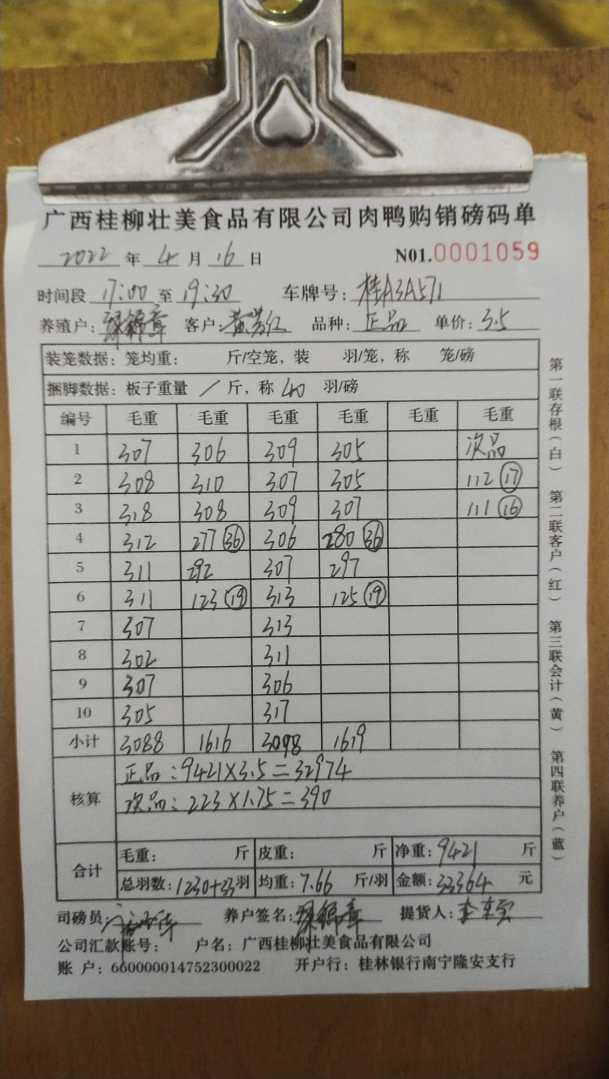 广西桂柳壮美食品有限公司肉鸭购销磅码单
2022 年 4 月 16 日 N01.0001059
时间段 17:00 至 19:30 车牌号: 桂A3A571
养殖户: 客户: 品种: 正品 单价: 3.5
装笼数据: 笼均重: 斤/空笼, 装 羽/笼, 称 笼/磅
捆脚数据: 板子重量 / 斤, 称 40 羽/磅
编号 毛重 毛重 毛重 毛重 毛重 毛重
1 307 306 309 305 次品
2 308 310 307 305 112 17
3 318 308 309 307 111 16
4 312 277 36 306 280 36
5 311 292 307 297
6 311 123 19 313 125 19
7 307 313
8 302 311
9 307 306
10 305 317
小计 3088 1616 3098 1619
核算 正品:9421×3.5=32974
次品:223×1.75=390
合计 毛重: 斤 皮重: 斤 净重: 9421 斤
总羽数: 1230+33 羽 均重: 7.66 斤/羽 金额: 33364 元
司磅员 养户签名: 提货人:
公司汇款账号: 户名: 广西桂柳壮美食品有限公司
账 户: 660000014752300022 开户行: 桂林银行南宁隆安支行
第一联存根(白) 第二联客户(红) 第三联会计(黄) 第四联养户(蓝)